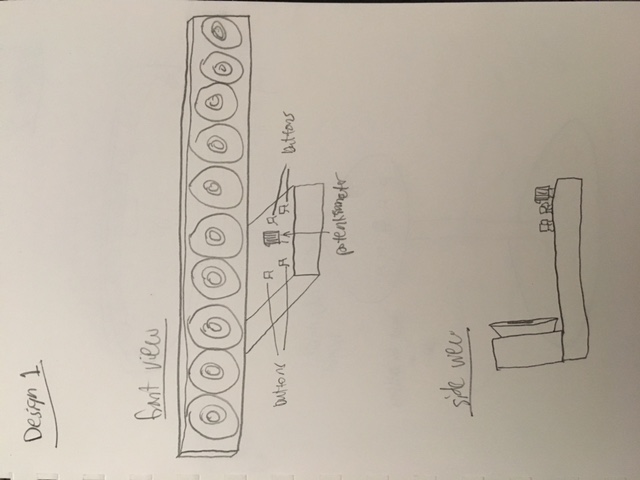 Design 1
front view
buttons
buttons
potentiometer
side view